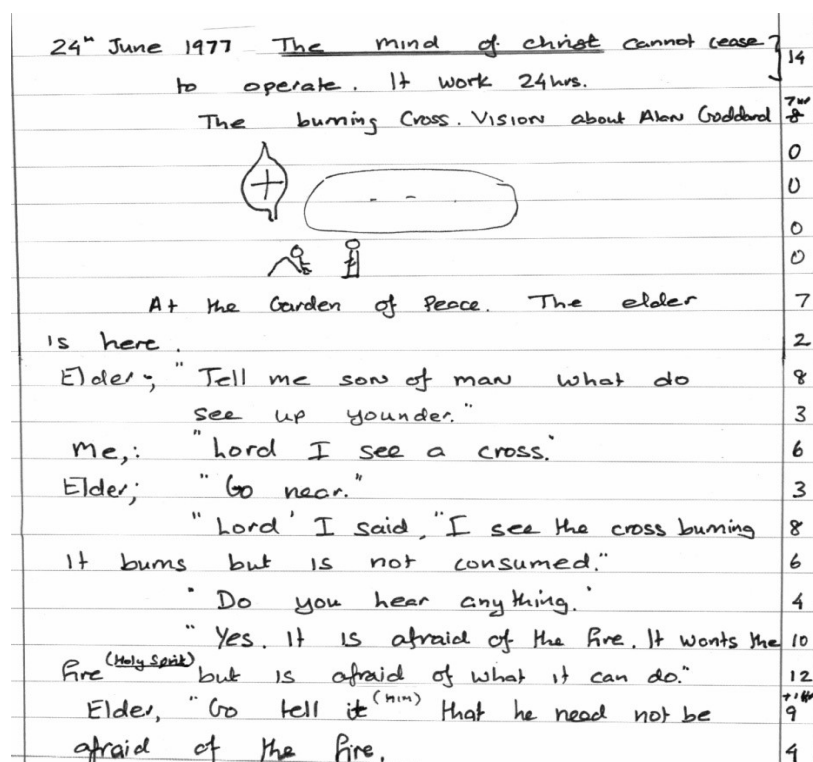 24th June 1977 The mind of christ cannot cease } 14
to operate. It work 24hrs.
The burning Cross. Vision about Alan Goddard 8
0
0
0
0
At the Garden of Peace. The elder 7
is here. 2
Elder; "Tell me son of man what do 8
see up younder." 3
Me,: "Lord I see a cross." 6
Elder; "Go near." 3
"Lord' I said, "I see the cross burning 8
It burns but is not consumed." 6
"Do you hear anything.' 4
"Yes. It is afraid of the fire. It wants the 10
fire (Holy Spirit) but is afraid of what it can do." 12
Elder, "Go tell it (him) that he need not be 9
afraid of the fire. 4